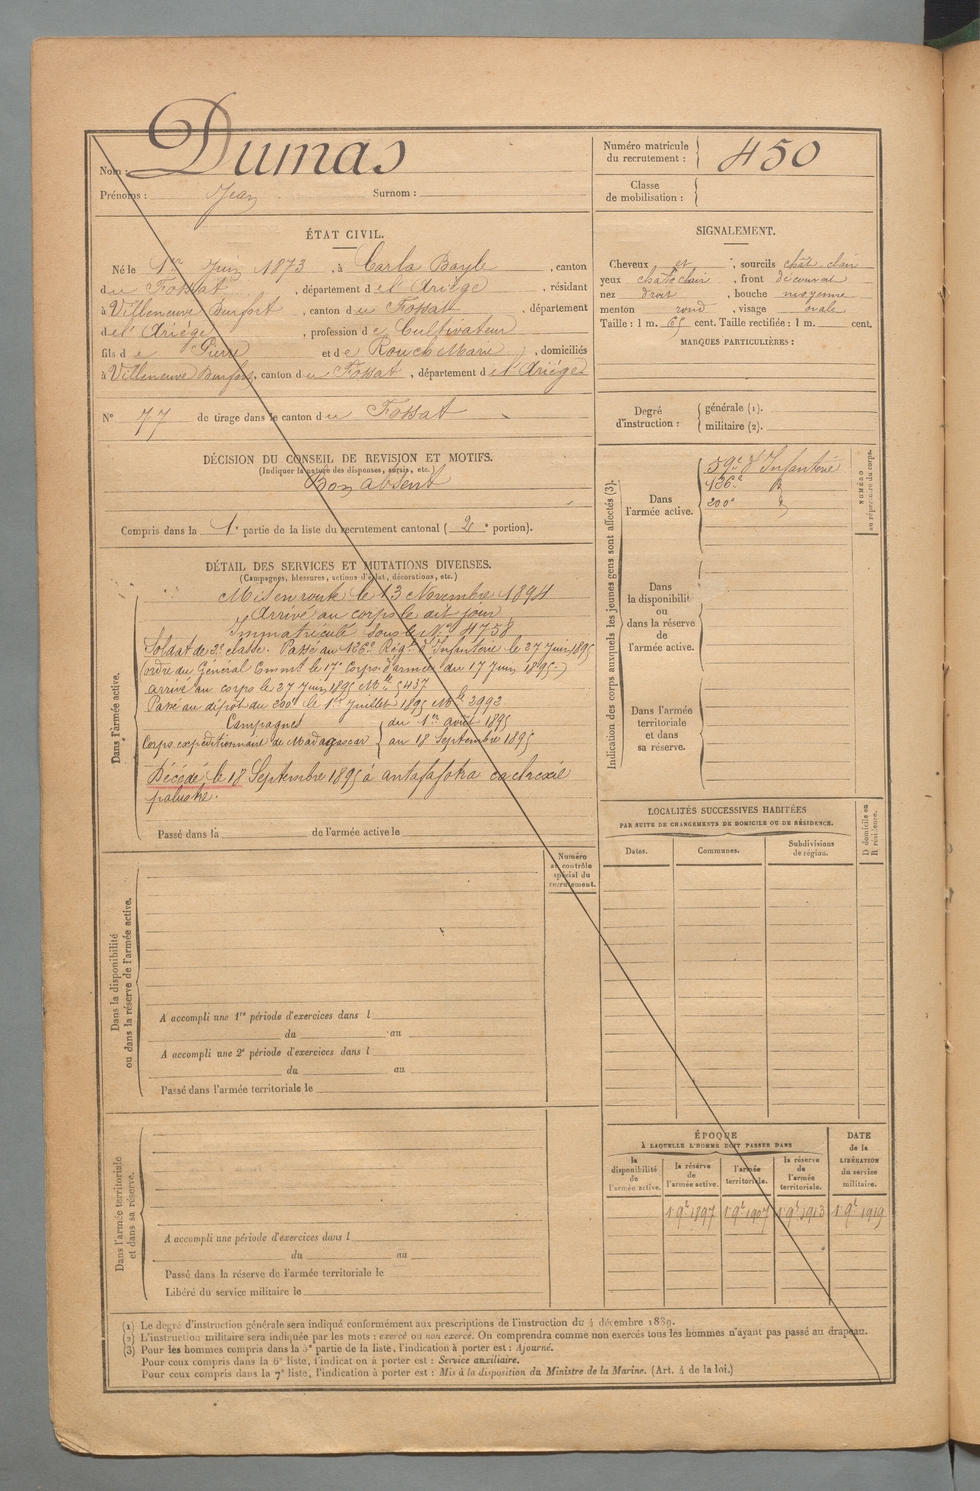 Nom : Dumas
Prénoms : Jean Surnom :
Numéro matricule du recrutement : 450
Classe de mobilisation :
ÉTAT CIVIL.
Né le 1er Juin 1873, à Carla Bayle, canton
du Fossat, département de l'Ariège, résidant
à Villeneuve Durfort, canton du Fossat, département
de l'Ariège, profession de Cultivateur
fils de Pierre et de Rouch Marie, domiciliés
à Villeneuve Durfort, canton du Fossat, département de l'Ariège
N° 77 de tirage dans le canton du Fossat
DÉCISION DU CONSEIL DE REVISION ET MOTIFS.
(Indiquer la nature des dispenses, sursis, etc.)
Bon absent
Compris dans la 1e partie de la liste du recrutement cantonal (2e portion).
DÉTAIL DES SERVICES ET MUTATIONS DIVERSES.
(Campagnes, blessures, actions d'éclat, décorations, etc.)
Dans l'armée active.
Mis en route le 13 Novembre 1894
Arrivé au corps le dit jour
Immatriculé sous le No 4758
Soldat de 2e classe. Passé au 136e Régt d'Infanterie le 27 juin 1895
(ordre du Général Commt le 17e Corps d'armée du 17 Juin 1895)
arrivé au corps le 27 juin 1895 No Mle 5437
Passé au dépôt du 200e le 1er juillet 1895 No Mle 2992
Campagnes
Corps expéditionnaire de Madagascar
du 1er août 1895
au 18 Septembre 1895
Décédé le 18 Septembre 1895 à antafafotra cachexie
palustre.
Passé dans la de l'armée active le
Dans la disponibilité
ou dans la réserve de l'armée active.
Numéro
au contrôle
spécial du
recrutement.
A accompli une 1re période d'exercices dans l
du au
A accompli une 2e période d'exercices dans l
du au
Passé dans l'armée territoriale le
Dans l'armée territoriale
et dans sa réserve.
A accompli une période d'exercices dans l
du au
Passé dans la réserve de l'armée territoriale le
Libéré du service militaire le
SIGNALEMENT.
Cheveux et, sourcils chât. clair
yeux chât. clair, front découvert
nez droit, bouche moyenne
menton rond, visage ovale
Taille : 1 m. 65 cent. Taille rectifiée : 1 m. cent.
MARQUES PARTICULIÈRES :
Degré d'instruction :
générale (1).
militaire (2).
Indication des corps auxquels les jeunes gens sont affectés (3).
NUMÉRO
au répertoire du corps.
Dans
l'armée active.
59e d'Infanterie
136e
200e
Dans
la disponibilité
ou
dans la réserve
de
l'armée active.
Dans l'armée
territoriale
et dans
sa réserve.
LOCALITÉS SUCCESSIVES HABITÉES
PAR SUITE DE CHANGEMENTS DE DOMICILE OU DE RÉSIDENCE.
Dates.
Communes.
Subdivisions
de région.
D domicile ou
R résidence.
ÉPOQUE
À LAQUELLE L'HOMME DOIT PASSER DANS
la
disponibilité
de
l'armée active.
la réserve
de
l'armée active.
l'armée
territoriale.
la réserve
de
l'armée
territoriale.
DATE
de la
LIBÉRATION
du service
militaire.
1 9bre 1897
1 9bre 1907
1 9bre 1913
1 9bre 1919
(1) Le degré d'instruction générale sera indiqué conformément aux prescriptions de l'instruction du 4 décembre 1889.
(2) L'instruction militaire sera indiquée par les mots : exercé ou non exercé. On comprendra comme non exercés tous les hommes n'ayant pas passé au drapeau.
(3) Pour les hommes compris dans la 5e partie de la liste, l'indication à porter est : Ajourné.
Pour ceux compris dans la 6e liste, l'indication à porter est : Service auxiliaire.
Pour ceux compris dans la 7e liste, l'indication à porter est : Mis à la disposition du Ministre de la Marine. (Art. 4 de la loi.)